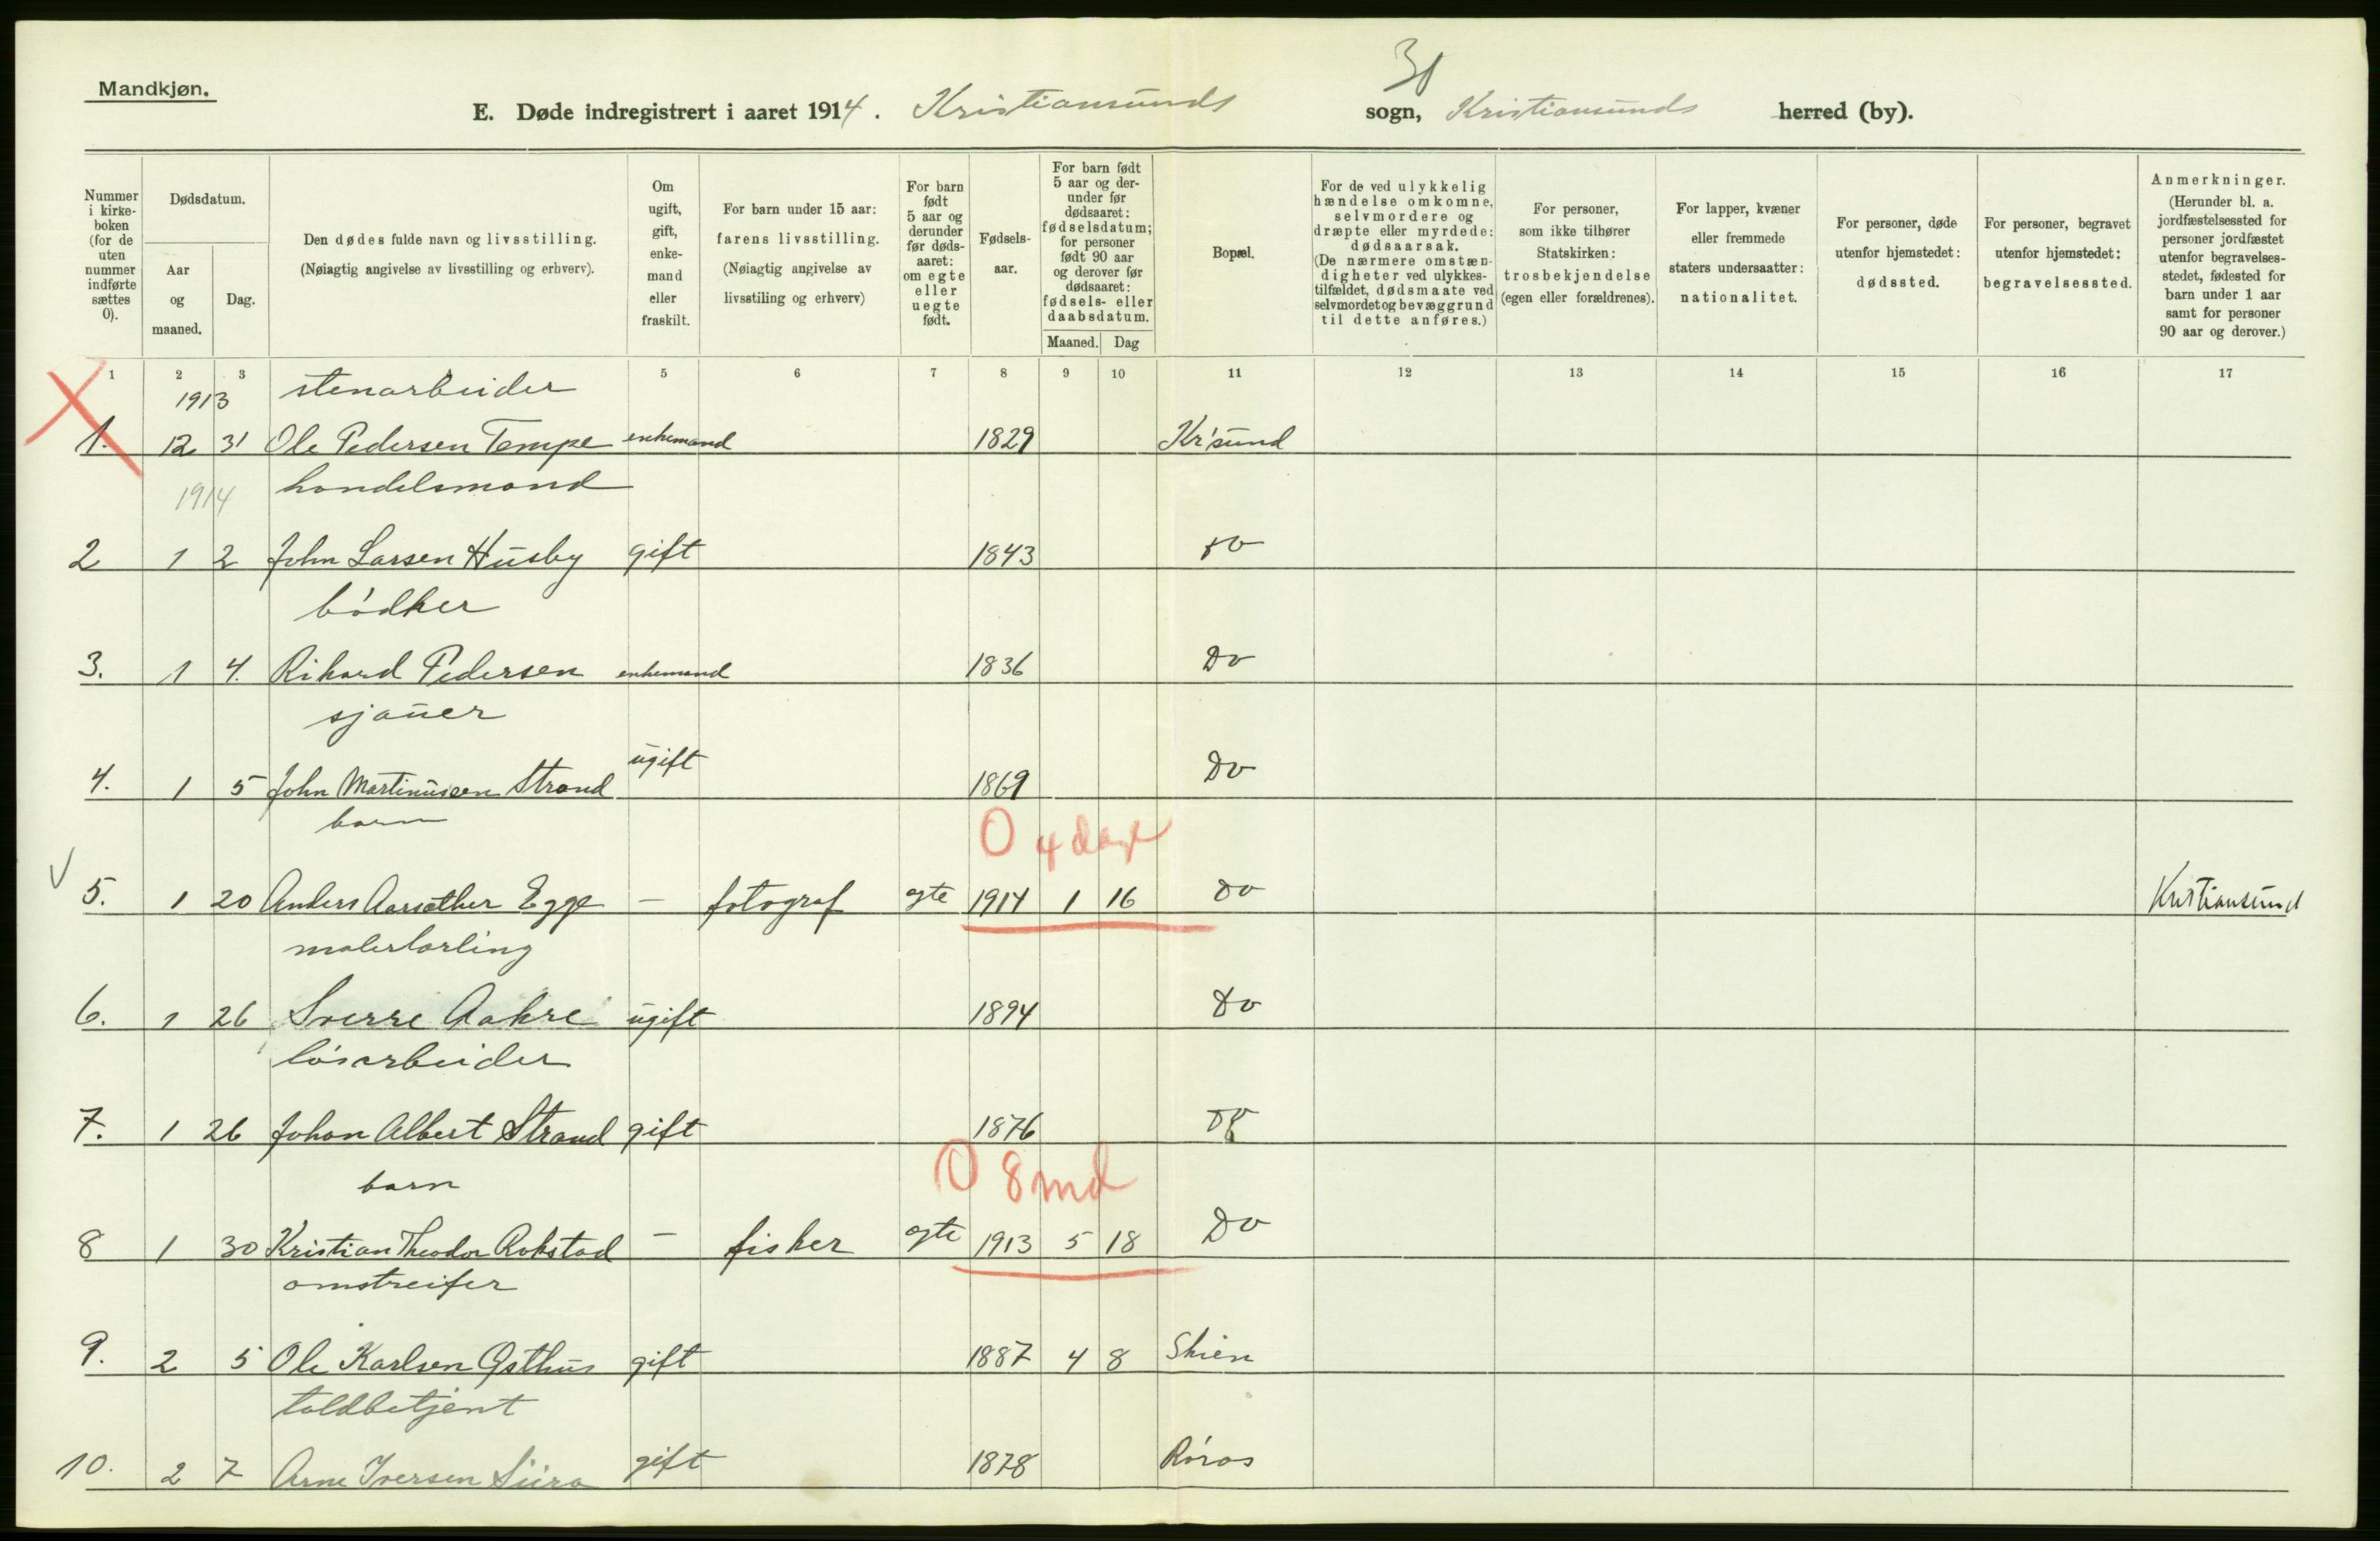 30
Mandkjøn.
E. Døde indregistrert i aaret 1914. Kristiansunds sogn, Kristiansunds herred (by).
Nummer i kirke-boken (for de uten nummer indførte sættes 0).
Dødsdatum.
Aar og maaned.
Dag.
Den dødes fulde navn og livsstilling.
(Nøiagtig angivelse av livsstilling og erhverv).
Om ugift, gift, enke-mand eller fraskilt.
For barn under 15 aar: farens livsstilling.
(Nøiagtig angivelse av livsstiling og erhverv)
For barn født 5 aar og derunder før døds-aaret: om egte eller uegte født.
Fødsels-aar.
For barn født 5 aar og der-under før dødsaaret: fødselsdatum; for personer født 90 aar og derover før dødsaaret: fødsels- eller daabsdatum.
Maaned. Dag
Bopæl.
For de ved ulykkelig hændelse omkomne, selvmordere og dræpte eller myrdede: dødsaarsak.
(De nærmere omstæn-digheter ved ulykkes-tilfældet, dødsmaate ved selvmordet og bevæggrund til dette anføres.)
For personer, som ikke tilhører Statskirken: trosbekjendelse (egen eller forældrenes).
For lapper, kvæner eller fremmede staters undersaatter: nationalitet.
For personer, døde utenfor hjemstedet: dødssted.
For personer, begravet utenfor hjemstedet: begravelsessted.
Anmerkninger.
(Herunder bl. a. jordfæstelsessted for personer jordfæstet utenfor begravelses-stedet, fødested for barn under 1 aar samt for personer 90 aar og derover.)
1 2 3 5 6 7 8 9 10 11 12 13 14 15 16 17
1913 stenarbeider
1. 12 31 Ole Pedersen Tempe enkemand 1829 Kr'sund
1914 handelsmand
2 1 2 John Larsen Husby gift 1843 do
bødker
3. 1 4. Rikard Pedersen enkemand 1836 Do
sjauer
4. 1 5 John Martinussen Strand ugift 1869 Do
barn
0 4 dage
5. 1 20 Anders Aarsæther Egge — fotograf egte 1914 1 16 Do Kristiansund
malerlærling
6. 1 26 Sverre Aakre ugift 1894 Do
løsarbeider
7. 1 26 Johan Albert Strand gift 1876 Do
barn
0 8 md
8 1 30 Kristian Theodor Rokstad — fisker egte 1913 5 18 Do
omstreifer
9. 2 5 Ole Karlsen Østhus gift 1887 4 8 Skien
toldbetjent
10. 2 7 Arne Iversen gift 1878 Røros